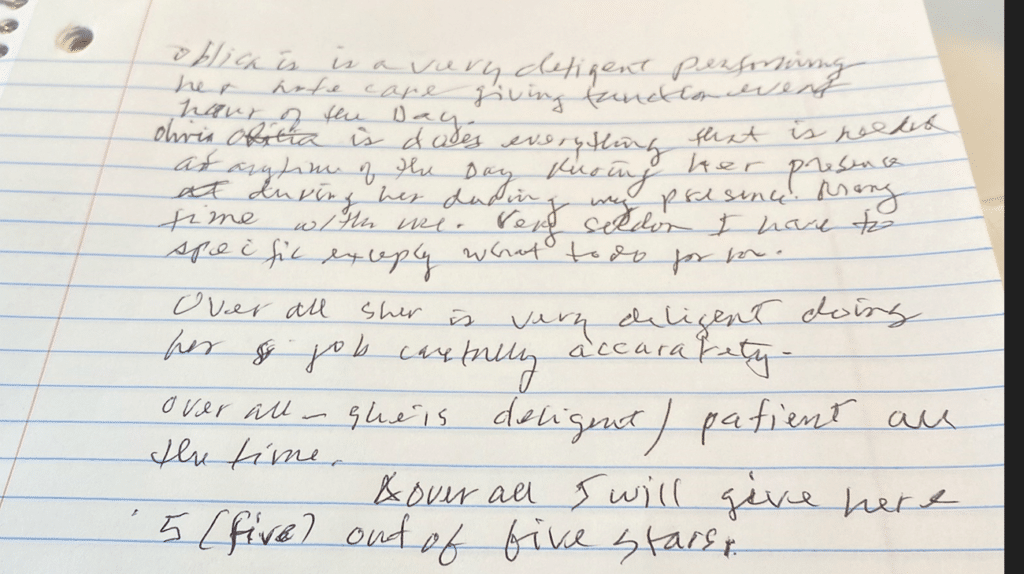 is a very deligent performing
her care giving function every
hour of the Day.
Olivia is does everything that is needed
at anytime of the Day Knoing her presence
during her during my presence. Many
time with me. Very seldon I have to
specific what to do for me.
Over all sher is very deligent doing
her job carefully accaratety-
over all - she is deligent / patient all
the time.
& over all I will give here
5 (five) out of five stars.